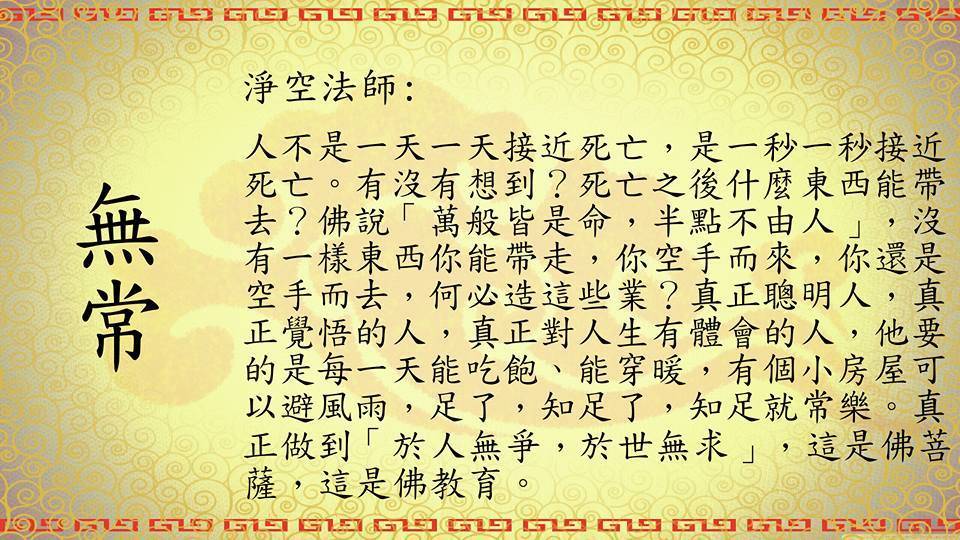 無常
淨空法師:
人不是一天一天接近死亡，是一秒一秒接近
死亡。有沒有想到？死亡之後什麼東西能帶
去？佛說「萬般皆是命，半點不由人」，沒
有一樣東西你能帶走，你空手而來，你還是
空手而去，何必造這些業？真正聰明人，真
正覺悟的人，真正對人生有體會的人，他要
的是每一天能吃飽、能穿暖，有個小房屋可
以避風雨，足了，知足了，知足就常樂。真
正做到「於人無爭，於世無求」，這是佛菩
薩，這是佛教育。